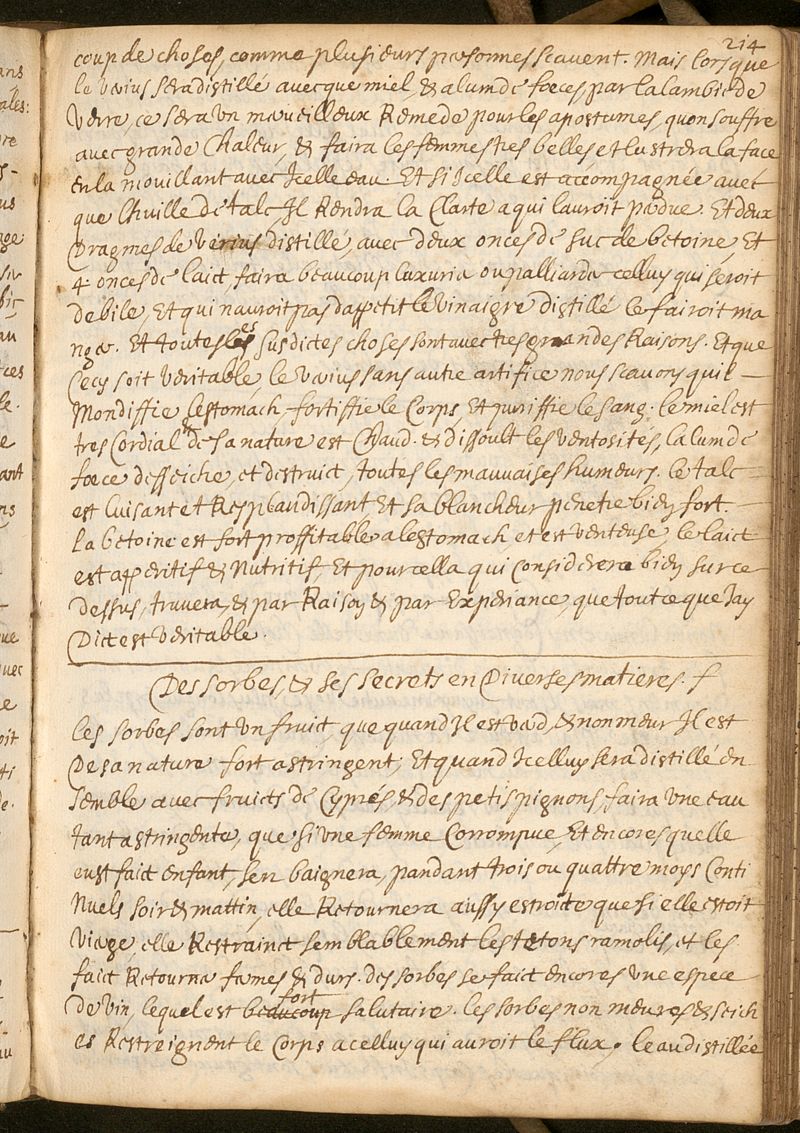 214
coup de choses, comme plusieurs personnes scavent. Mais lors que
le verius sera distillé avecque miel, & alum de feces par lalambic de
verre, ce sera un merveilleux Remede pour les apostumes, quon souffre
avec grande Chaleur, & faira les femmes tres belles et lustrera la face
en la mouillant avec Icelle eau. Et si Icelle est accompagnée avec
que lhuille de talc Il Rendra la Clarte a qui lauroit perdue. Et deux
Dragmes de verius distillé, avec deux onces de suc de betoine, Et
4 onces de laict, faira beaucoup luxurier ou palliarder celluy qui seroit
debile, Et qui nauroit pas dappetit le vinaigre distillé le fairoit ma
nger. Et toutes les susdictes choses sont avec tres grandes Raisons. Et que
Cecy soit veritable, le verius sans autre artifice nous scavons quil
Mondiffie lestomach, fortiffie le Corps Et puriffie le sang. le miel est
tres Cordial de sa nature est Chaud. & dissoult les ventosités, lalum de
fece desseiche, et destruict, toutes les mauvaises humeurs. le talc
est luisant et Resplandissant, Et sa blancheur penetre bien fort.
la betoine est fort proffitable a lestomach, et est venteuse, le laict
est apperitif & Nutritif, Et pour cella qui Considerera bien sur ce
dessus, truvera, & par Raison & par Experiance, que tout ce que Jay
Dict est veritable.
Des sorbes, & ses secrets en Diverses matieres.
les sorbes sont un fruict, que quand Il est verd, & non meur Il est
De sa nature fort astringent, Et quand Icelluy sera distillé en
semble avec fruicts de Cyprés, & des petis pignons, faira une eau
tant astringente, que si une femme Corrompue, Et encores quelle
eust faict enfant, sen baignera, pandant trois ou quattre moys Conti
Nuels soir & mattin, elle Retournera aussy estroicte que si elle estoit
vierge, elle Restrainct semblablement les tetons ramolis, et les
faict Retourner fermes & durs. des sorbes se faict encores une espece
de vin, lequel est beaucoup fort salutaire. les sorbes non meures & seich
es Restreignent le Corps a celluy qui auroit le flux, leau distillée